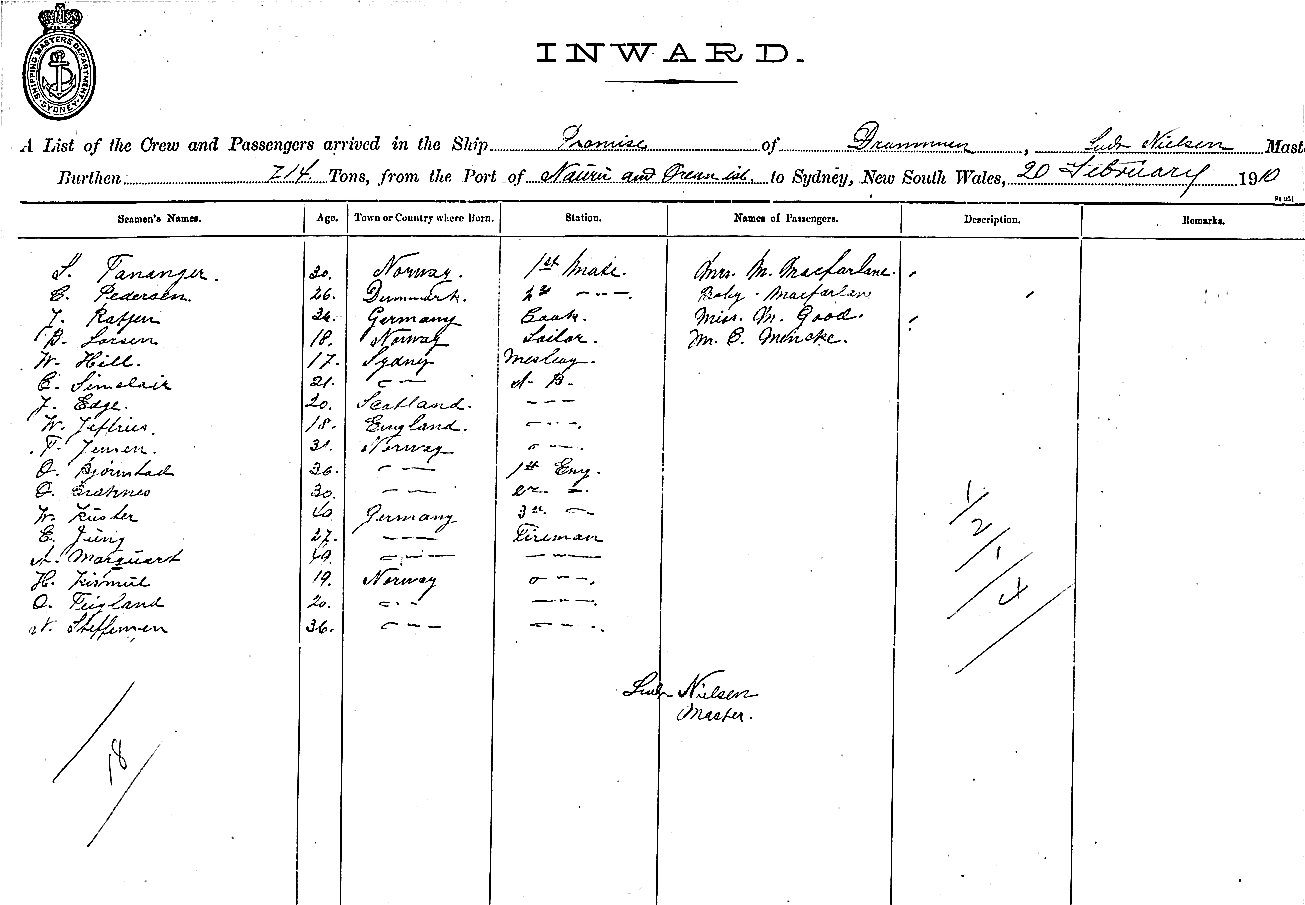 SHIPPING MASTERS DEPARTMENT SYDNEY
INWARD.
A List of the Crew and Passengers arrived in the Ship Promise of Drammen, Ludv Nielsen Mast
Burthen 714 Tons, from the Port of Nauru and Ocean isl. to Sydney, New South Wales, 20 February 1910
Seamen's Names. Age. Town or Country where Born. Station. Names of Passengers. Description. Remarks.
S. Tananger. 30. Norway. 1st Mate. Mrs. M. Macfarlane.
C. Pedersen. 26. Denmark. 2nd - - - . Baby - Macfarlan
J. Ratjen Germany Cook. Miss. M. Good.
B. Larsen 18. Norway Sailor. M. C. Mencke.
W. Hill. 17. Sydney Mesboy.
C. Sinclair 21. - - - A. B.
J. Edge. 20. Scotland. - - -
W. Jeffries. 18. England. - - - .
T. Jensen. 31. Norway - - - .
O. Bjornstad 36. - - - 1st Eng.
O. 30. - - - 2n - .
W. Küster 40 Germany 3rd -
E. Jüng 27. - - - Fireman
A. Marquart 49. - - - - - -
H. Kismul 19. Norway - - - .
O. Fugland 20. - - - - - - .
N. Steffensen 36. - - - - - - .
1/2/1/4
Ludv Nielsen
Master.
18